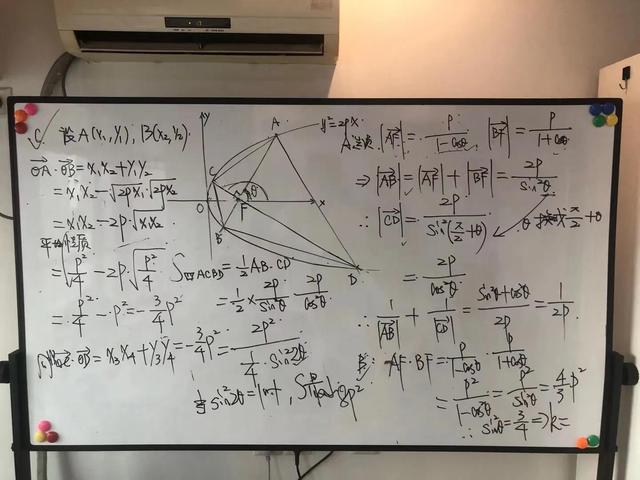 C✓ 设A(x₁,y₁), B(x₂,y₂)
OA·OB=x₁x₂+y₁y₂
=x₁x₂-√2px₁·√2px₂
=x₁x₂-2p√x₁x₂
=√p²/4-2p·√p²/4
=p²/4-p²=-3/4p²
OC·OD=x₃x₄+y₃y₄=-3/4p²
y
A
y²=2px
C
θ
O
F
x
B
D
S ACBD=1/2AB·CD
=1/2×2p/sin²θ·2p/cos²θ
=2p²/(1/4·sin²2θ)
当sin²2θ=1时, S =8p²
|AF|=p/(1-cosθ) |BF|=p/(1+cosθ)
⇒|AB|=|AF|+|BF|=2p/sin²θ
∴|CD|=2p/sin²(π/2+θ) θ换成π/2+θ
=2p/cos²θ
∴1/|AB|+1/|CD|=(sin²θ+cos²θ)/2p=1/2p
B: AF·BF=p/(1-cosθ)·p/(1+cosθ)
=p²/(1-cos²θ)=p²/sin²θ=4/3p²
∴sin²θ=3/4⇒k=